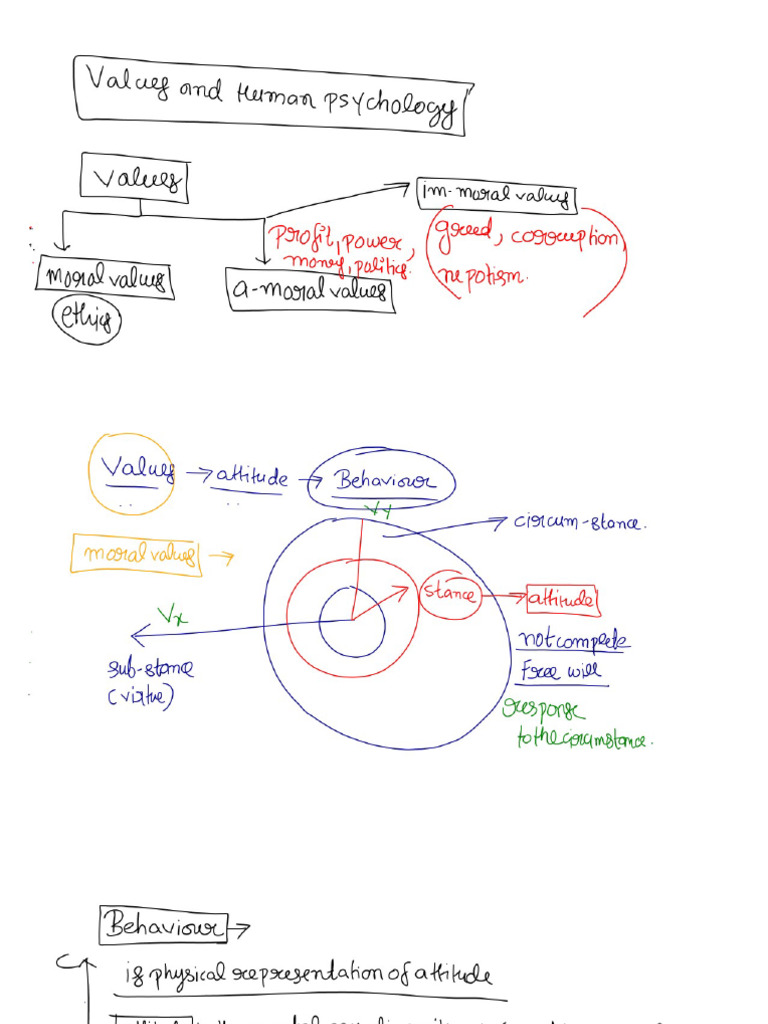 Values and Human Psychology
Values
im-moral values
profit, power,
money, politics.
greed, corruption,
nepotism.
moral values
a-moral values
ethics
Values → attitude → Behaviour
Vy
circum-stance.
moral values →
stance → attitude
Vx
sub-stance
(virtue)
not complete
Free will
response
to the circumstance.
Behaviour →
is physical representation of attitude